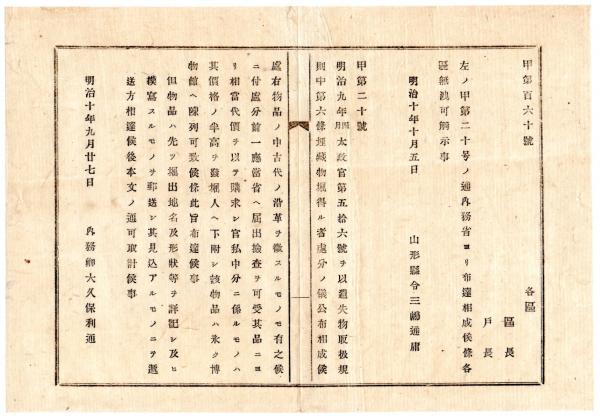 甲第百六十號
各區
區長
戸長
左ノ甲第二十号ノ通內務省ヨリ布達相成候條各
區無洩可觸示事
明治十年十月五日
山形縣令三島通庸
甲第二十號
明治九年四月太政官第五拾六號ヲ以遺失物取扱規
則中第六條埋藏物堀得ル者處分ノ儀公布相成候
處右物品ノ中古代ノ沿革ヲ徵スルモノモ有之候
ニ付處分前一應當省ヘ届出檢査ヲ可受其品ニヨ
リ相當代價ヲ以テ購求シ官私中分ニ係ルモノハ
其價格ノ半高ヲ發堀人ヘ下附シ該物品ハ永ク博
物館ヘ陳列可致候條此旨布達候事
但物品ハ先ツ堀出地名及形狀等ヲ詳記シ及ヒ
模寫スルモノヲ郵送シ其見込アルモノニテ遞
送方相達候後本文ノ通可取計候事
明治十年九月廿七日
內務卿大久保利通